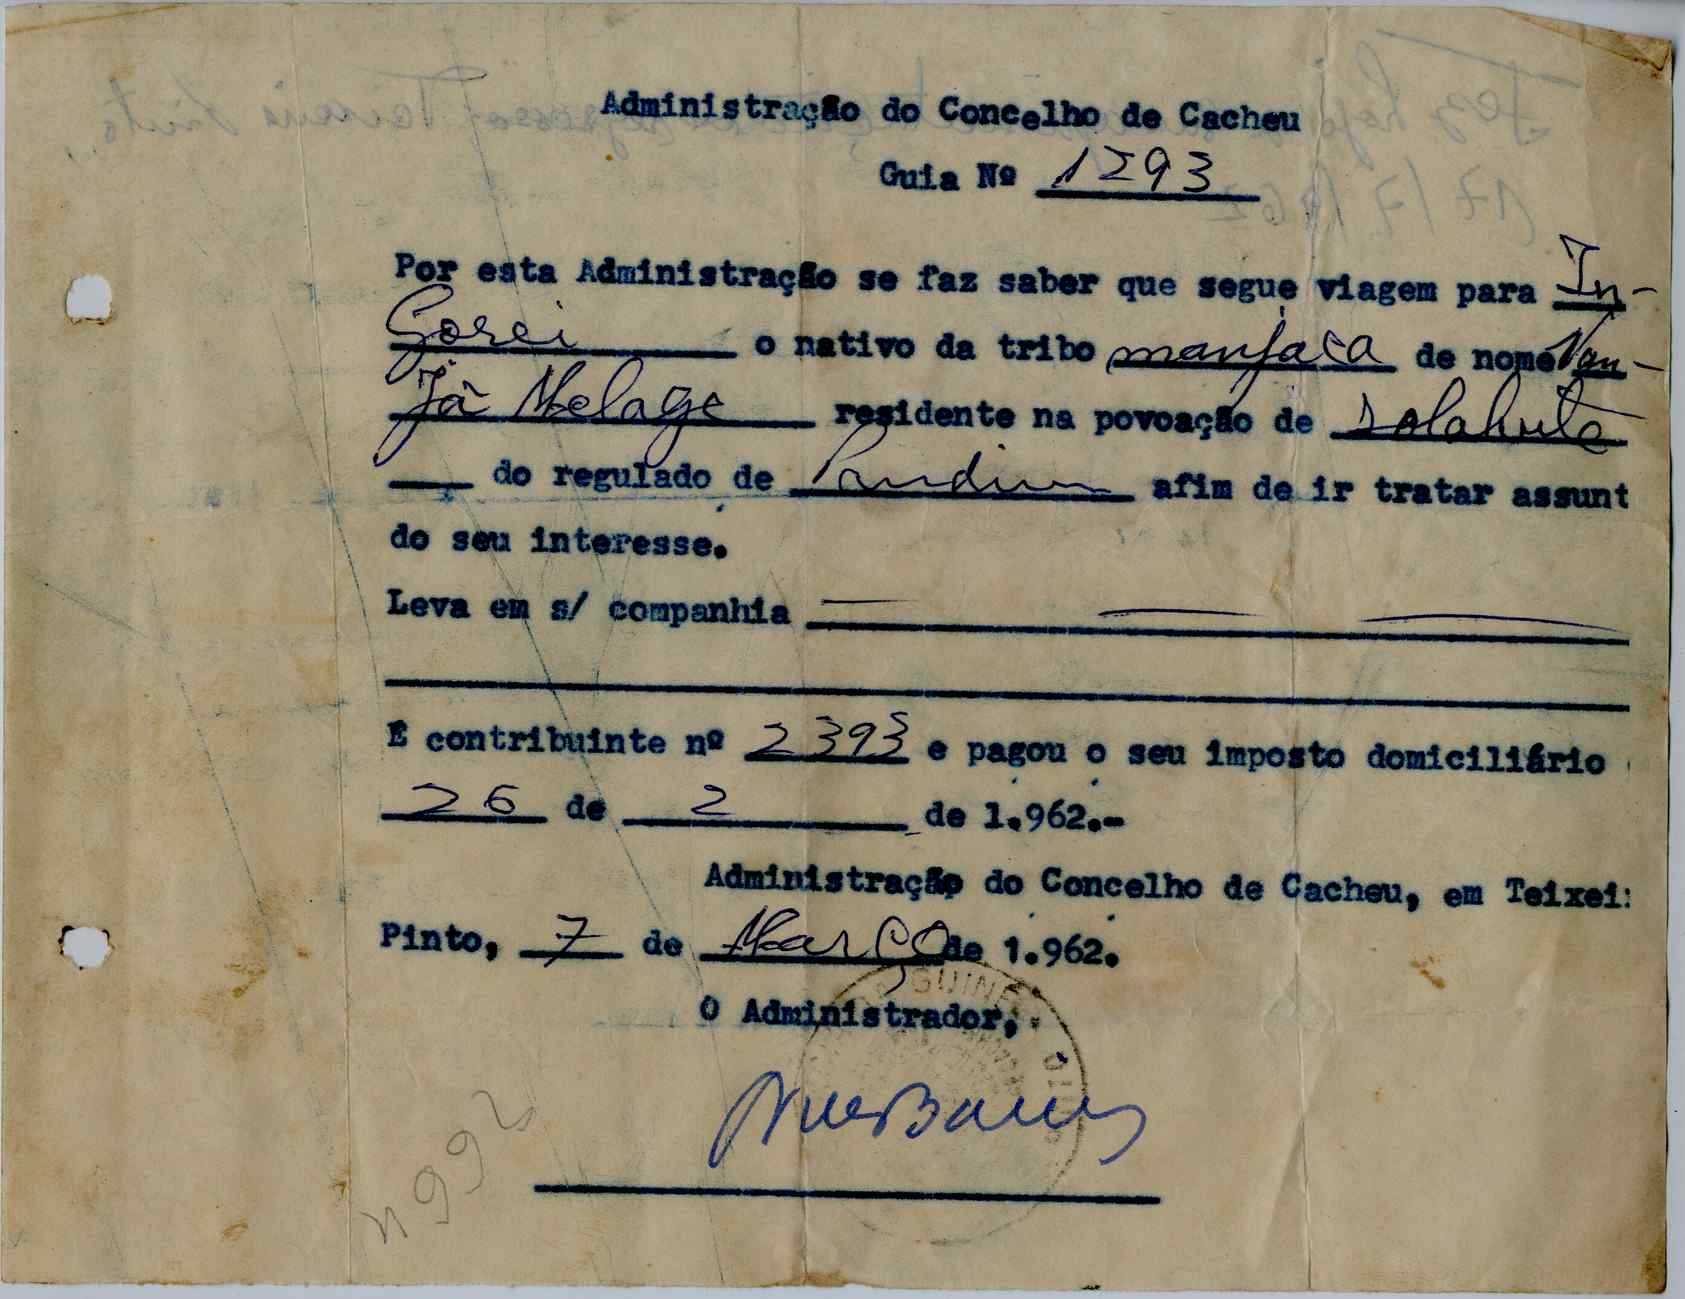 Administração do Concelho de Cacheu
Guia Nº 1293
Por esta Administração se faz saber que segue viagem para In-
gorei o nativo da tribo manjaca de nome Nan-
Jã Melage residente na povoação de
do regulado de afim de ir tratar assunt
do seu interesse.
Leva em s/ companhia
É contribuinte nº 2393 e pagou o seu imposto domiciliário
26 de 2 de 1.962.-
Administração do Concelho de Cacheu, em Teixei
Pinto, 7 de Março de 1.962.
O Administrador,